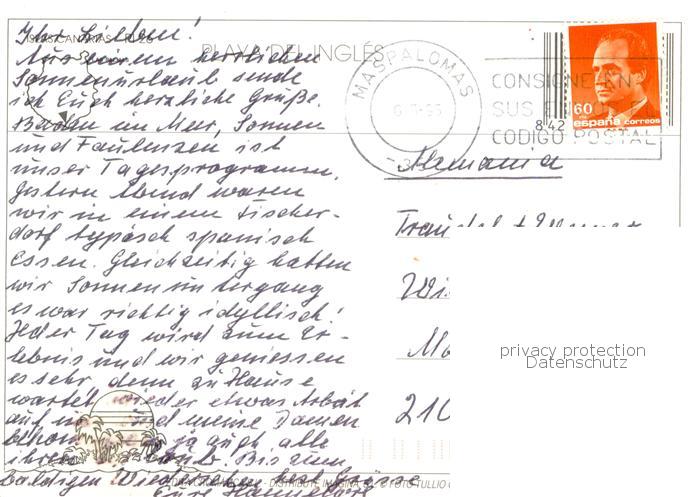 Ihr Lieben!
ISLAS CANARIAS
PLAYA DEL INGLÉS
Aus einem herrlichen
Sonnenurlaub sende
ich Euch herzliche Grüße.
Baden im Meer, Sonnen
und Faulenzen ist
unser Tagesprogramm.
Gestern Abend waren
wir in einem Fischer-
dorf typisch spanisch
essen. Gleichzeitig hatten
wir Sonnenuntergang
es war richtig idyllisch!
Jeder Tag wird zum Er-
lebnis und wir geniessen
es sehr, denn zu Hause
wartet wieder etwas Arbeit
auf und meine Damen
ja auch alle
Bis zum
baldigen Wiedersehen
Eure Hannelore
MASPALOMAS
CONSIGNE EN
SUS
CODIGO POSTAL
60
españa correos
8.42
Alemania
Wi
210
privacy protection
Datenschutz
DISTRIBUTE
© FOTO TULLIO